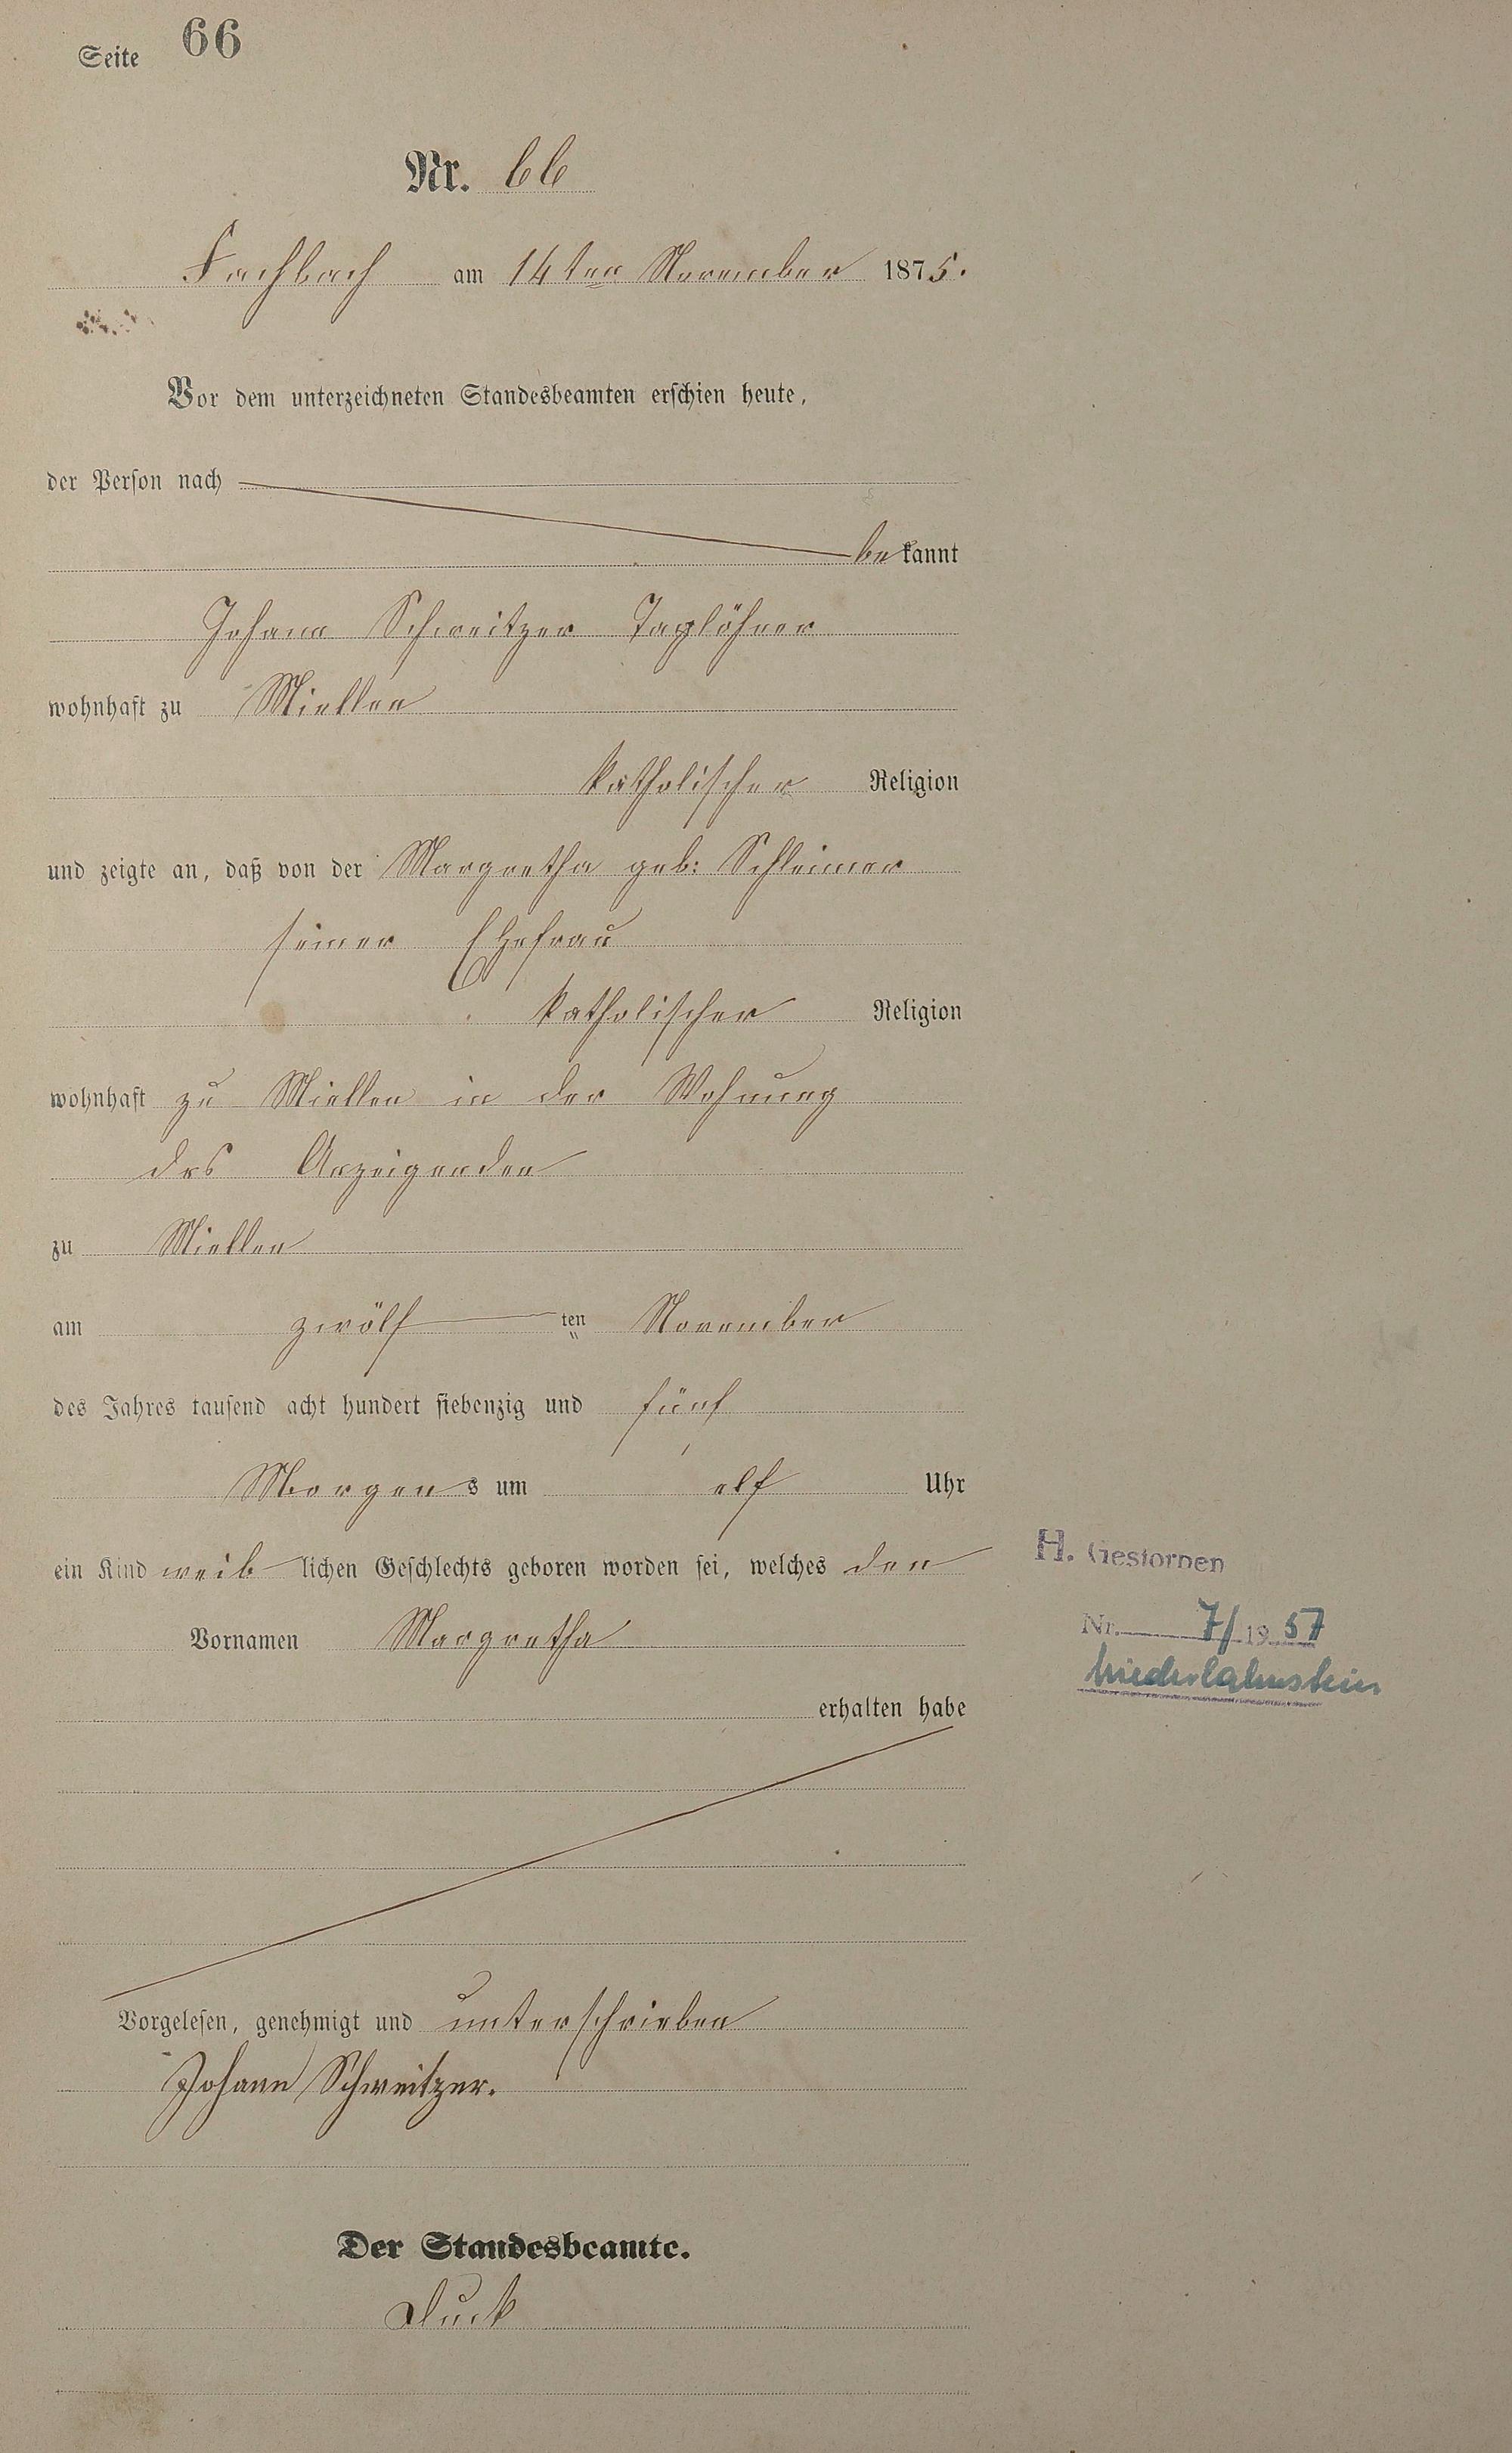 Seite 66
Nr. 66
Fachbach am 14ten November 1875.
Vor dem unterzeichneten Standesbeamten erschien heute,
der Person nach
bekannt
Johann Schweitzer Taglöhner
wohnhaft zu Miellen
katholischer Religion
und zeigte an, daß von der Margretha geb: Schleimer
seiner Ehefrau
katholischer Religion
wohnhaft zu Miellen in der Wohnung
des Anzeigenden
zu Miellen
am zwölften November
des Jahres tausend acht hundert siebenzig und fünf
Morgens um elf Uhr
ein Kind weiblichen Geschlechts geboren worden sei, welches den
H. Gestorben
Vornamen Margretha
Nr. 7/1957
Niederlahnstein
erhalten habe
Vorgelesen, genehmigt und unterschrieben
Johann Schweitzer.
Der Standesbeamte.